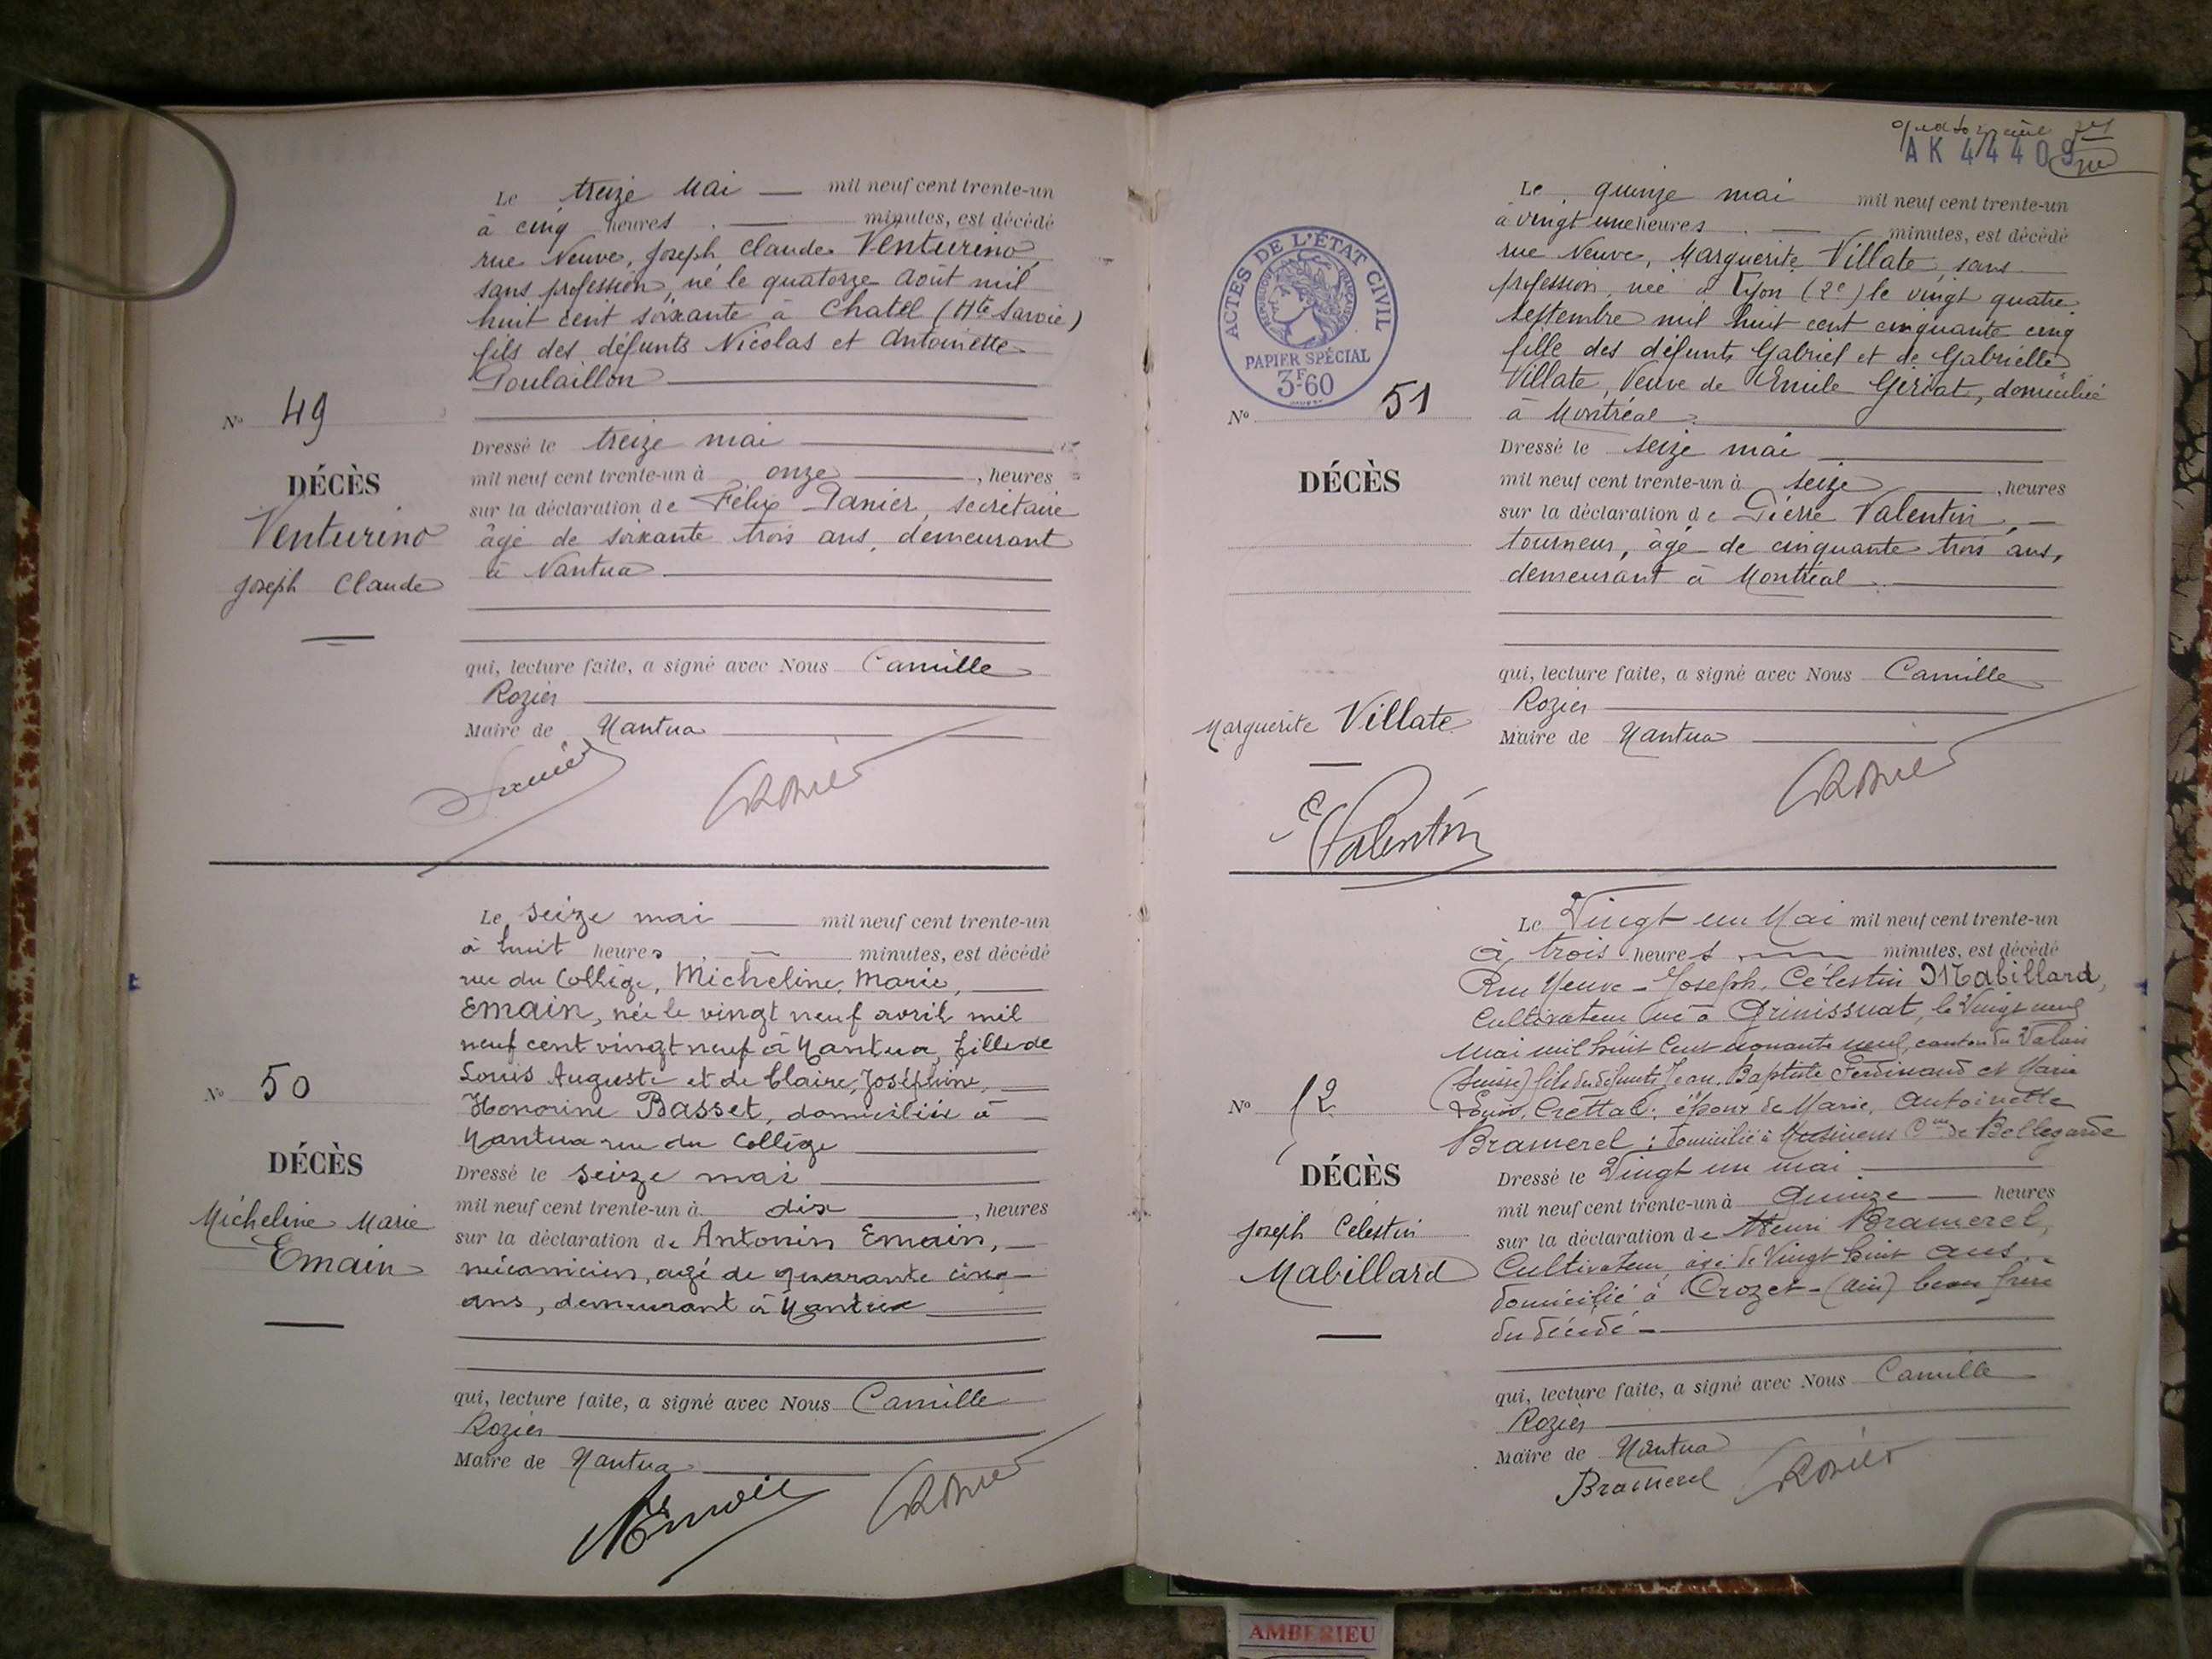 Le treize Mai — mil neuf cent trente-un
à cinq heures — minutes, est décédé
rue Neuve, Joseph Claude Venturino,
sans profession, né le quatorze Août mil
huit cent soixante à Chatel (Hte Savoie)
fils des défunts Nicolas et Antoinette
Poulaillon
No 49
DÉCÈS
Venturino
Joseph Claude
Dressé le treize mai
mil neuf cent trente-un à onze, heures
sur la déclaration de Félix Panier, secrétaire
âgé de soixante trois ans, demeurant
à Nantua
qui, lecture faite, a signé avec Nous Camille
Rozier
Maire de Nantua
Le seize mai — mil neuf cent trente-un
à huit heures — minutes, est décédé
rue du Collège, Micheline, Marie,
Emain, née le vingt neuf avril mil
neuf cent vingt neuf à Nantua, fille de
Louis Auguste et de Claire, Joséphine,
Honorine Basset, domiciliée à
Nantua rue du Collège
No 50
DÉCÈS
Micheline Marie
Emain
Dressé le seize mai
mil neuf cent trente-un à dix, heures
sur la déclaration de Antonin Emain,
mécanicien, agé de quarante cinq
ans, demeurant à Nantua
qui, lecture faite, a signé avec Nous Camille
Rozier
Maire de Nantua
AK 44409
ACTES DE L'ÉTAT CIVIL
RÉPUBLIQUE FRANÇAISE
PAPIER SPÉCIAL
3F60
Le quinze mai mil neuf cent trente-un
à vingt une heures — minutes, est décédé
rue Neuve, Marguerite Villate, sans
profession, née à Lyon (2e) le vingt quatre
septembre mil huit cent cinquante cinq
fille des défunts Gabriel et de Gabrielle
Villate, Veuve de Emile, domiciliée
à Montréal
No 51
DÉCÈS
Marguerite Villate
Dressé le seize mai
mil neuf cent trente-un à seize, heures
sur la déclaration de Pierre Valentin,
tourneur, âgé de cinquante trois ans,
demeurant à Montréal
qui, lecture faite, a signé avec Nous Camille
Rozier
Maire de Nantua
Valentin
Le Vingt un Mai mil neuf cent trente-un
à trois heures — minutes, est décédé
Rue Neuve - Joseph, Célestin Mabillard,
Cultivateur né à Grimissuat, le Vingt neuf
Mai mil huit cent nonante neuf, canton du Valais
(Suisse) fils des défunts Jean, Baptiste Ferdinand et Marie
Louise, Crettaz, époux de Marie, Antoinette
Bramerel; domicilié à Musinens Cne de Bellegarde
No 52
DÉCÈS
Joseph Célestin
Mabillard
Dressé le Vingt un mai
mil neuf cent trente-un à Quinze — heures
sur la déclaration de Henri Bramerel,
Cultivateur, âgé de Vingt huit ans,
domicilié à Crozet - (Ain) beau frère
du décédé -
qui, lecture faite, a signé avec Nous Camille
Rozier
Maire de Nantua
Bramerel
AMBERIEU